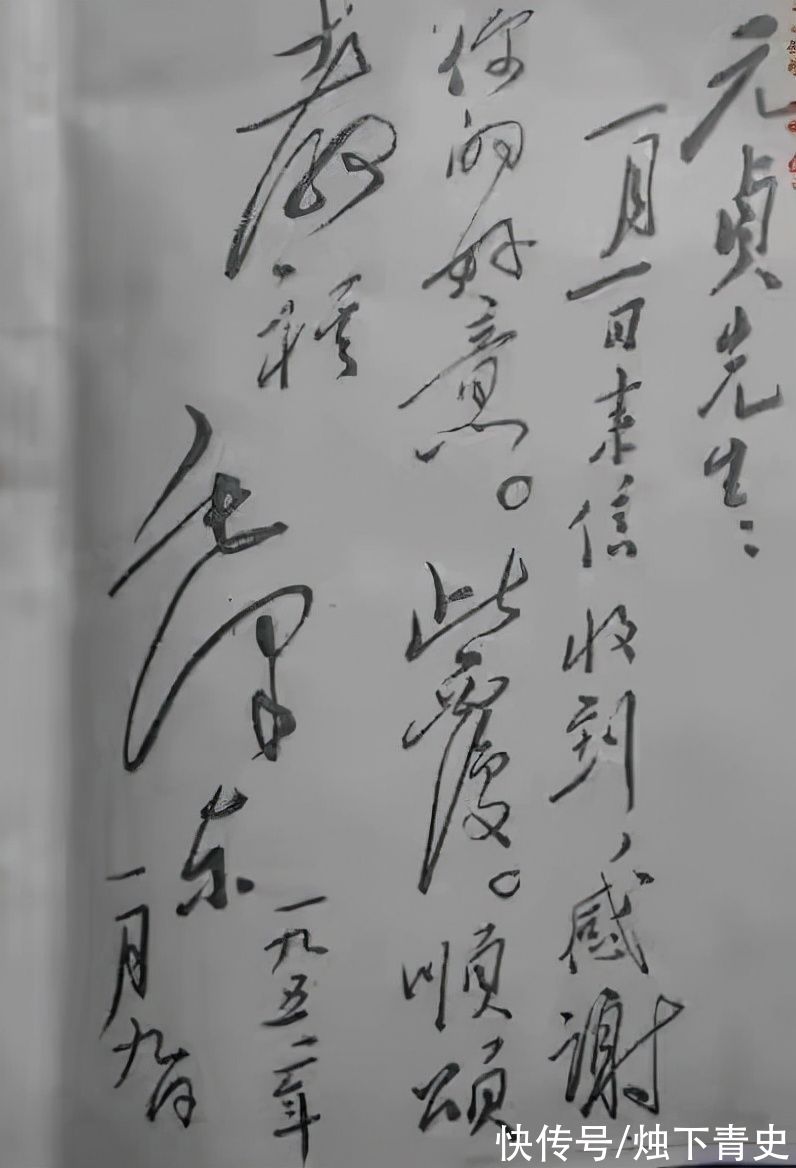 元贞先生：
一月一日来信收到，感谢
你的好意。此覆。顺颂
教祺
毛泽东
一九五二年
一月九日
快传号/烛下青史